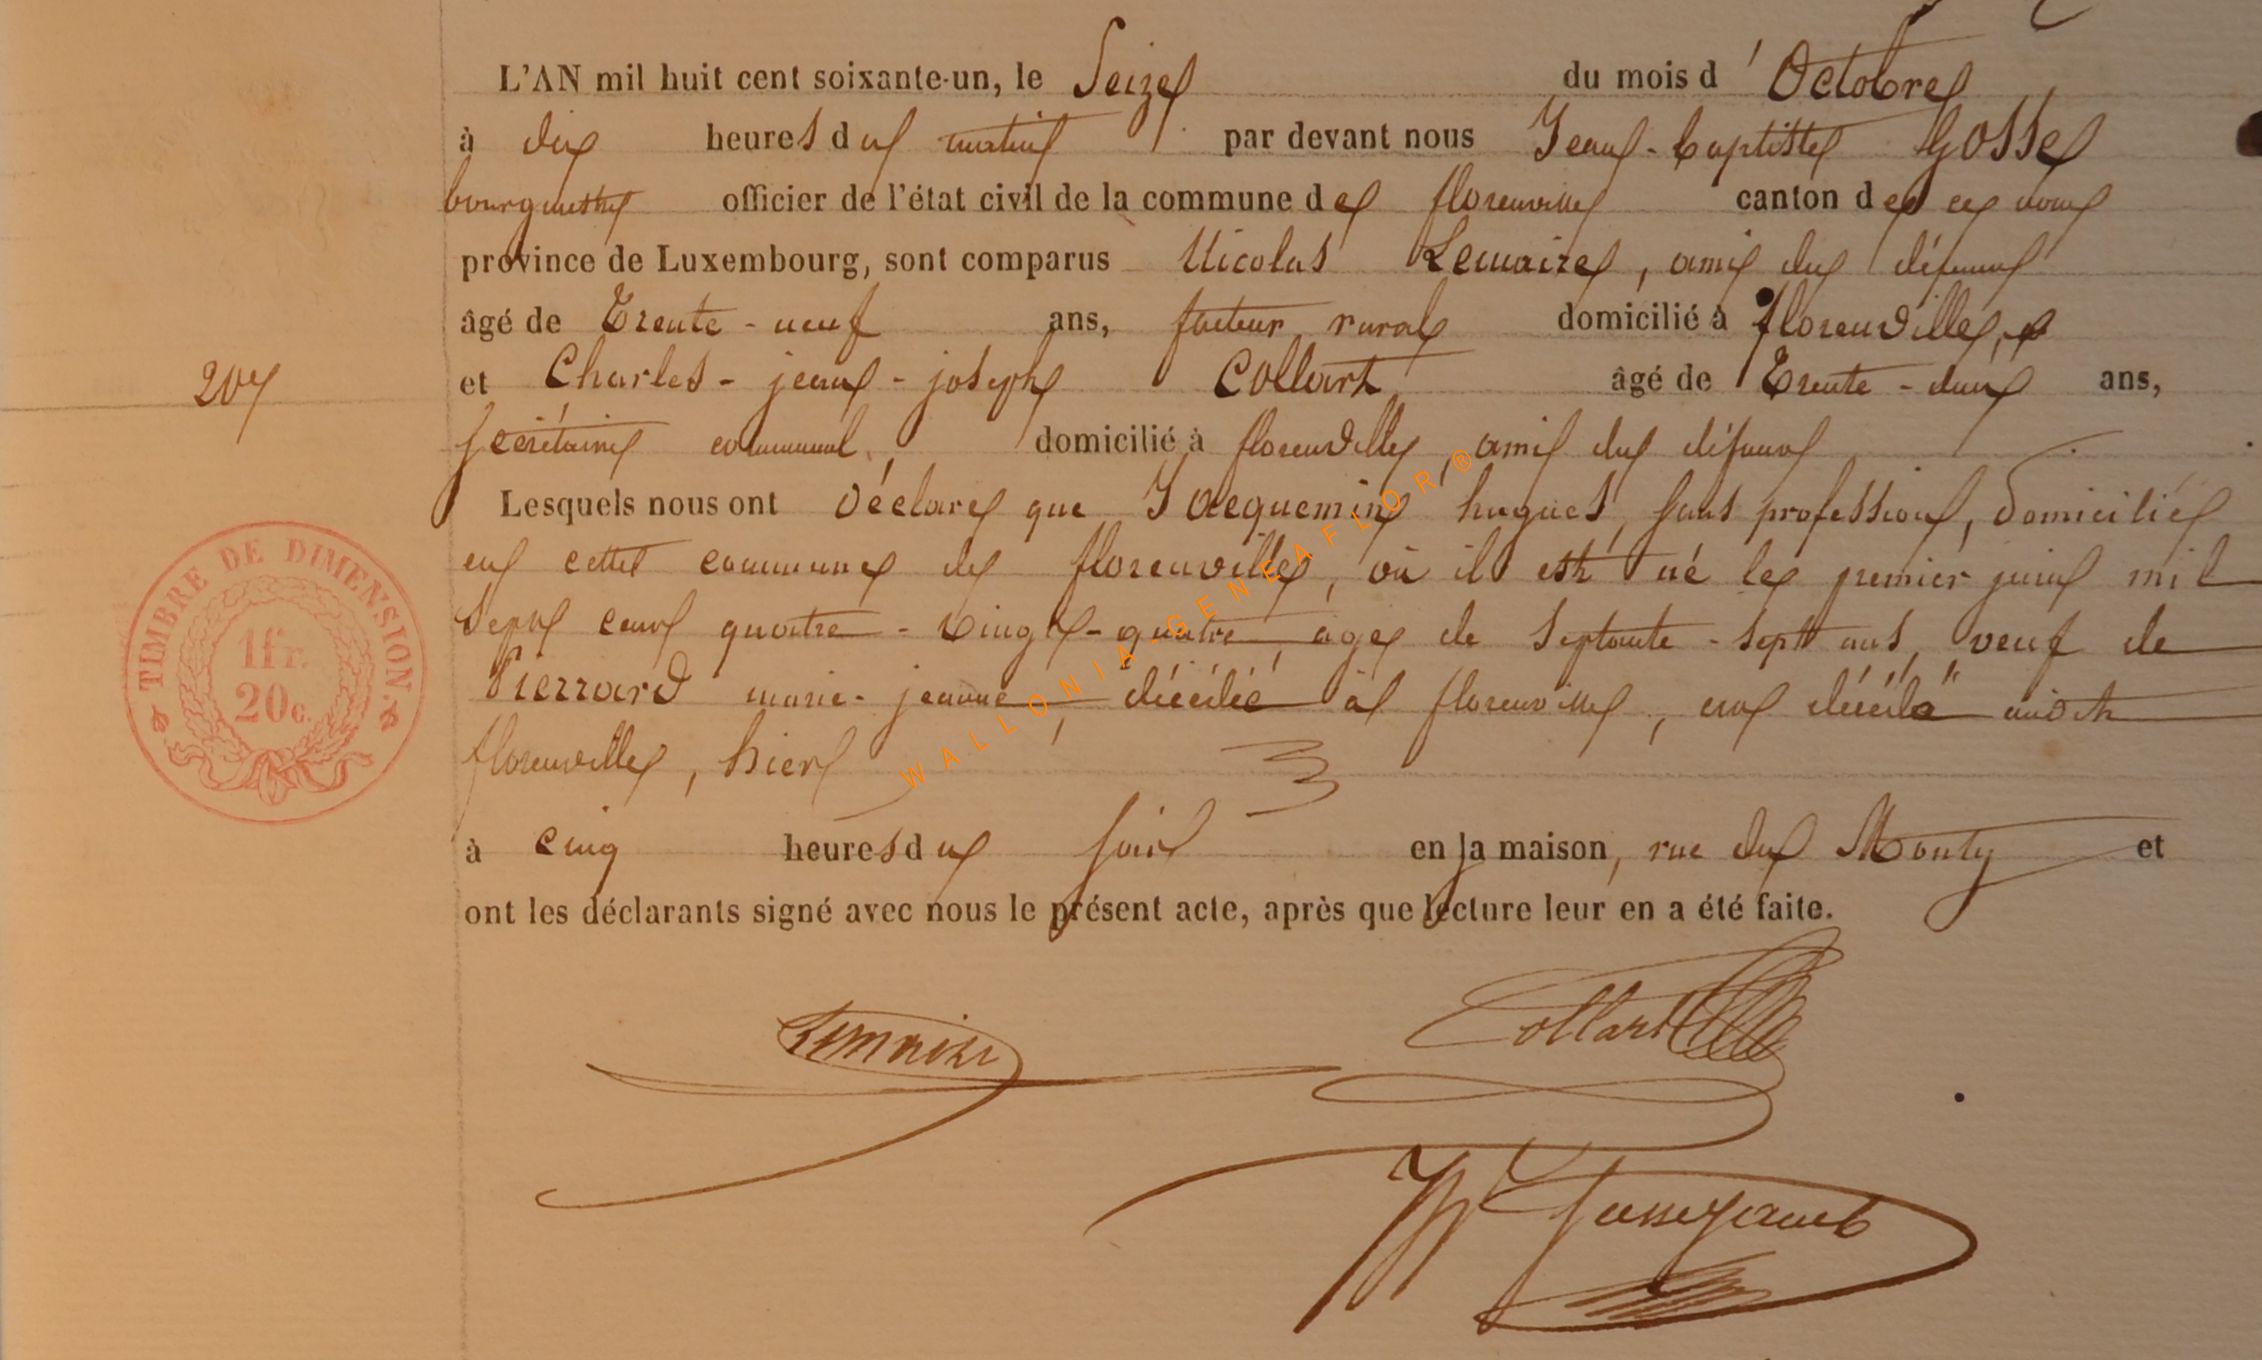 L'AN mil huit cent soixante-un, le Seize du mois d'Octobre
à dix heures du matin par devant nous Jean-baptiste Gosse
bourgmestre officier de l'état civil de la commune de florenville canton de ce nom
province de Luxembourg, sont comparus Nicolas Lemaire, ami du défunt
âgé de Trente-neuf ans, facteur rural domicilié à florenville,
et Charles-jean-joseph Collart âgé de Trente-deux ans,
20e
secrétaire communal, domicilié à florenville, ami du défunt
Lesquels nous ont déclaré que Jacquemin hugues, sans profession, domicilié
en cette commune de florenville, où il est né le premier juin mil
sept cent quatre-vingt-quatre, agé de septante-sept ans, veuf de
Pierrard marie-jeanne, décédée à florenville, est décédé audit
florenville, hier
à cinq heures du soir en sa maison, rue du Monty et
ont les déclarants signé avec nous le présent acte, après que lecture leur en a été faite.
TIMBRE DE DIMENSION.
1fr.
20c.
WALLONIA-GENEAFLOR®
Lemaire
Collart